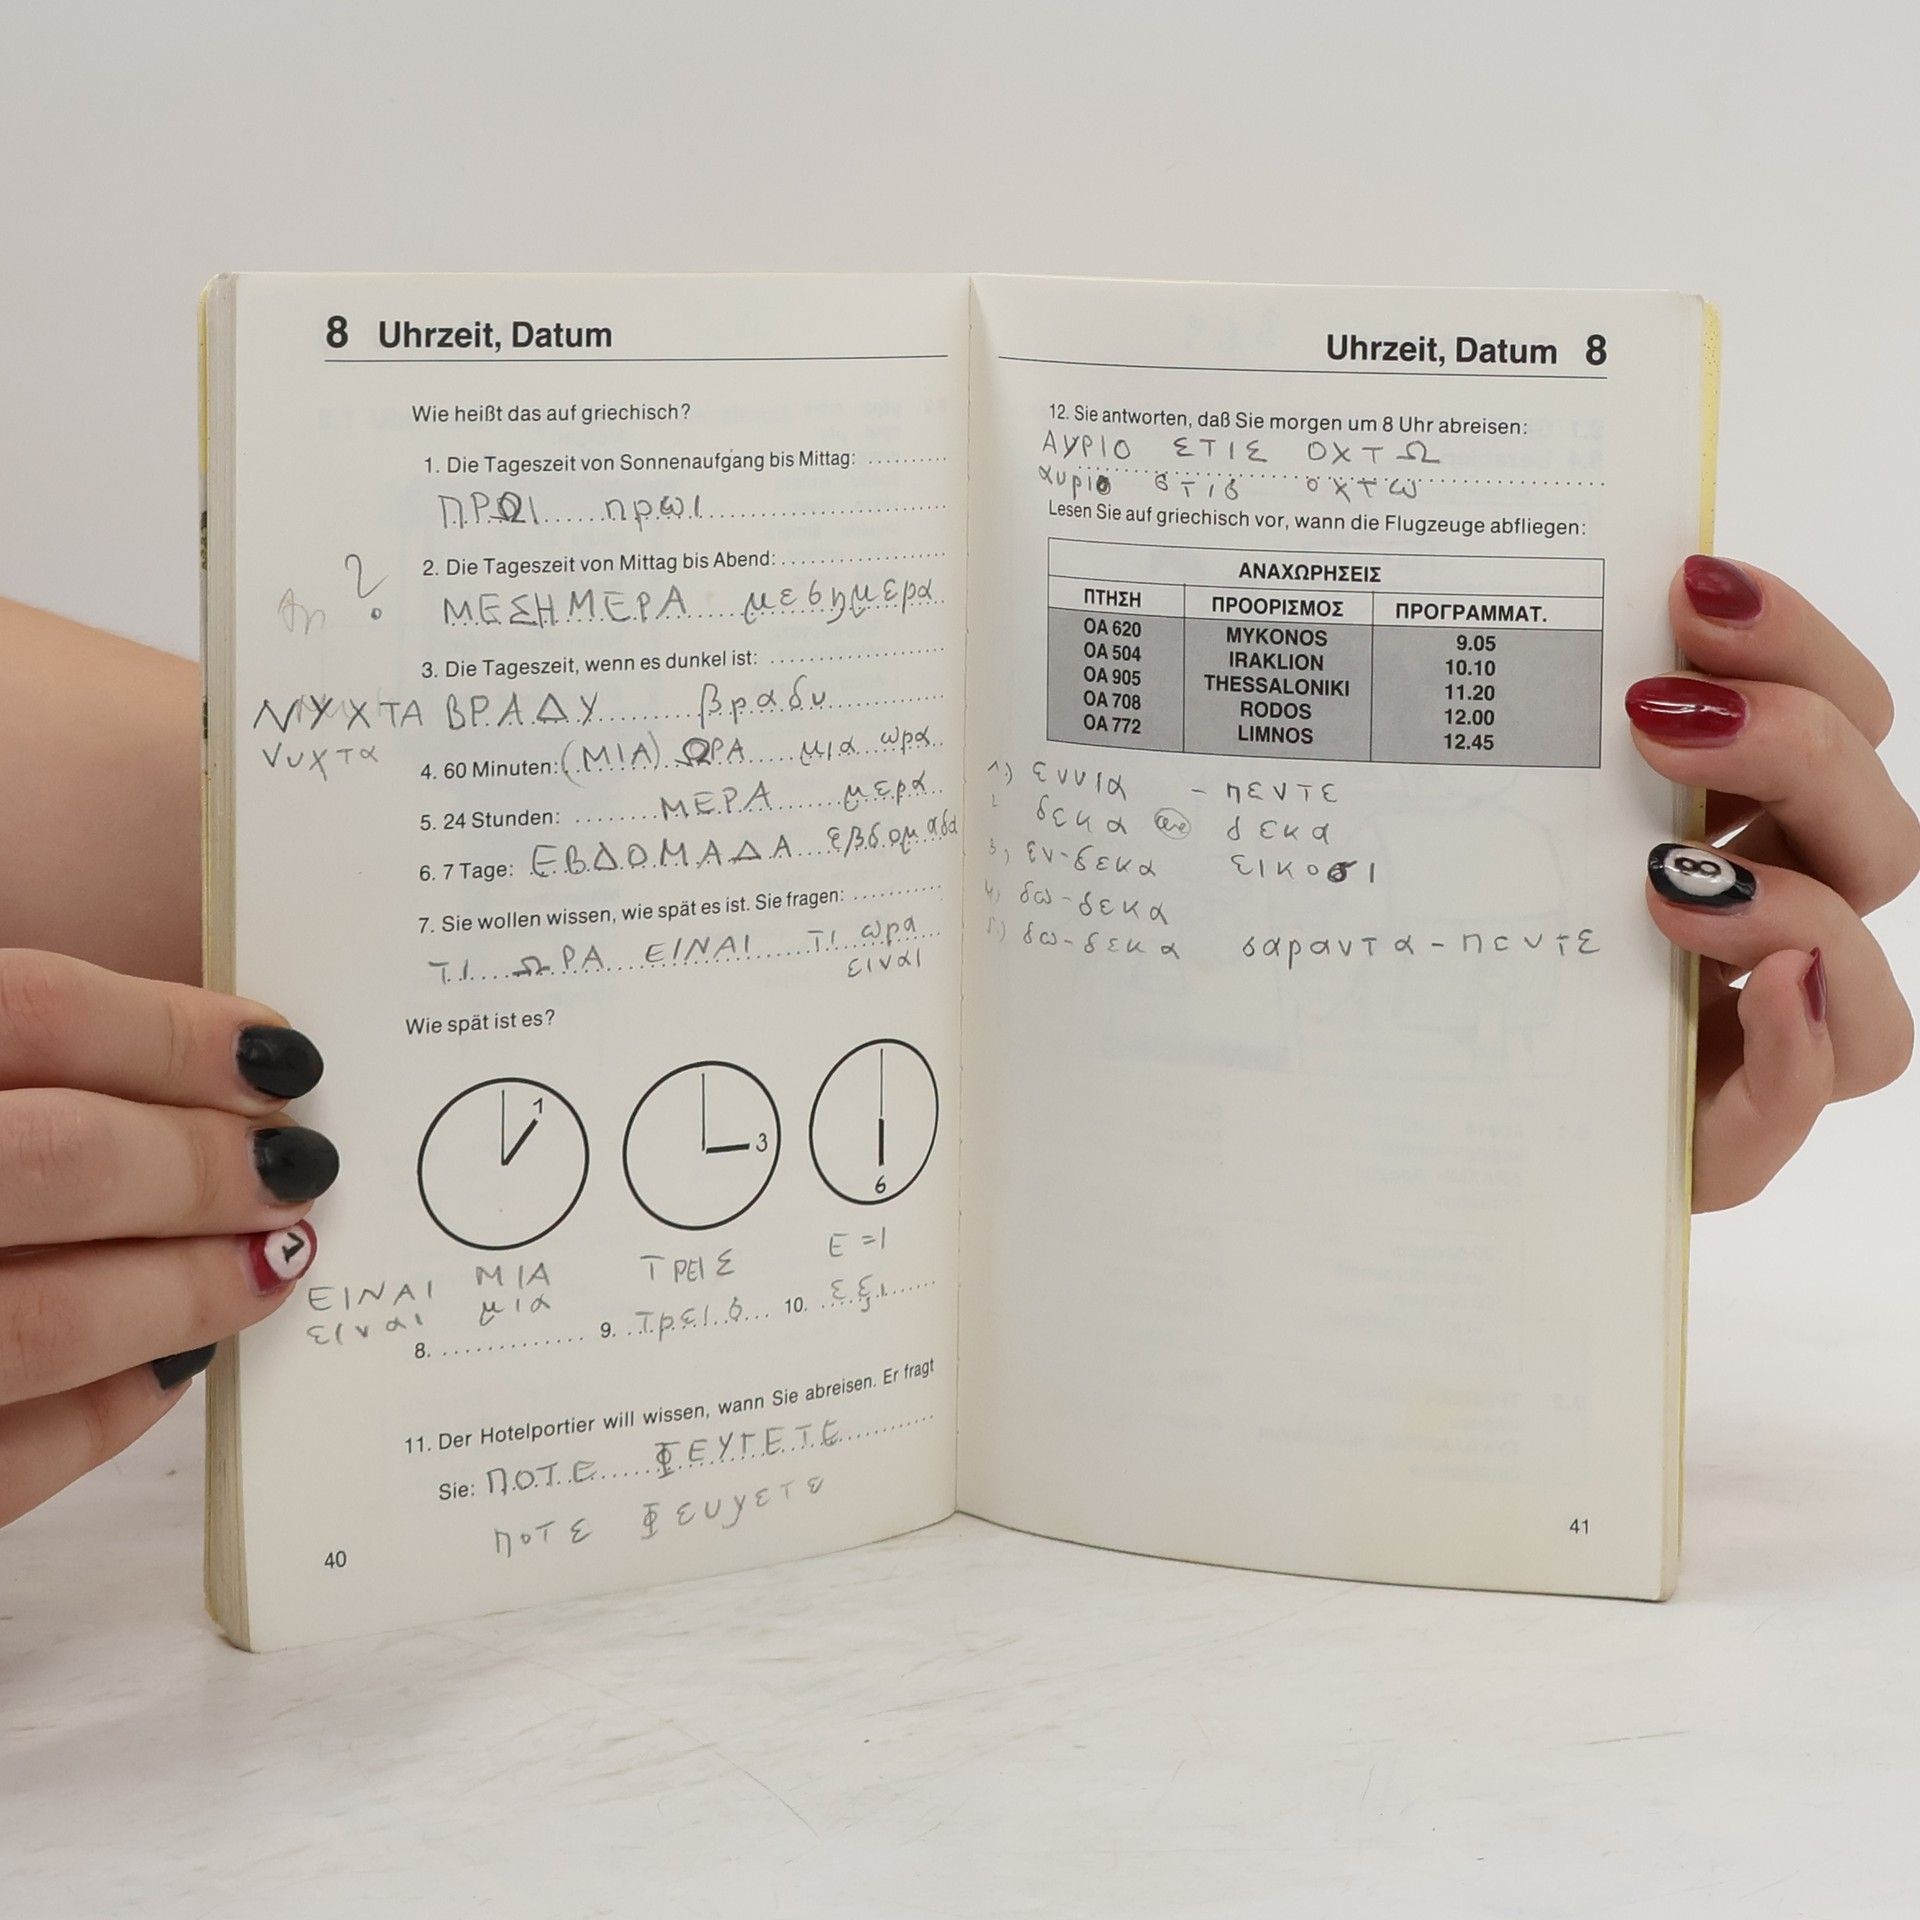 8 Uhrzeit, Datum
Wie heißt das auf griechisch?
1. Die Tageszeit von Sonnenaufgang bis Mittag: ..........
ΠΡΩΙ πρωι
2. Die Tageszeit von Mittag bis Abend: ..........
?
ΜΕΣΗΜΕΡΑ μεσημερα
3. Die Tageszeit, wenn es dunkel ist: ..........
ΝΥΧΤΑ ΒΡΑΔΥ βραδυ
νυχτα
4. 60 Minuten: (ΜΙΑ) ΩΡΑ μια ωρα
5. 24 Stunden: ΜΕΡΑ μερα
6. 7 Tage: ΕΒΔΟΜΑΔΑ εβδομαδα
7. Sie wollen wissen, wie spät es ist. Sie fragen: ..........
ΤΙ ΩΡΑ ΕΙΝΑΙ τι ωρα
ειναι
Wie spät ist es?
1
3
6
ΕΙΝΑΙ ΜΙΑ ΤΡΕΙΣ Ε=Ι
ειναι μια
8. .......... 9. τρεις 10. εξι
11. Der Hotelportier will wissen, wann Sie abreisen. Er fragt
Sie: ΠΟΤΕ ΦΕΥΓΕΤΕ
ποτε Φευγετε
40
Uhrzeit, Datum 8
12. Sie antworten, daß Sie morgen um 8 Uhr abreisen:
ΑΥΡΙΟ ΣΤΙΣ ΟΧΤΩ
αυριο στις οχτω
Lesen Sie auf griechisch vor, wann die Flugzeuge abfliegen:
ΑΝΑΧΩΡΗΣΕΙΣ
ΠΤΗΣΗ ΠΡΟΟΡΙΣΜΟΣ ΠΡΟΓΡΑΜΜΑΤ.
OA 620 MYKONOS 9.05
OA 504 IRAKLION 10.10
OA 905 THESSALONIKI 11.20
OA 708 RODOS 12.00
OA 772 LIMNOS 12.45
1.) εννια - πεντε
2 δεκα δεκα
3.) εν-δεκα εικοσι
4.) δω-δεκα
5.) δω-δεκα σαραντα - πεντε
41
8
1